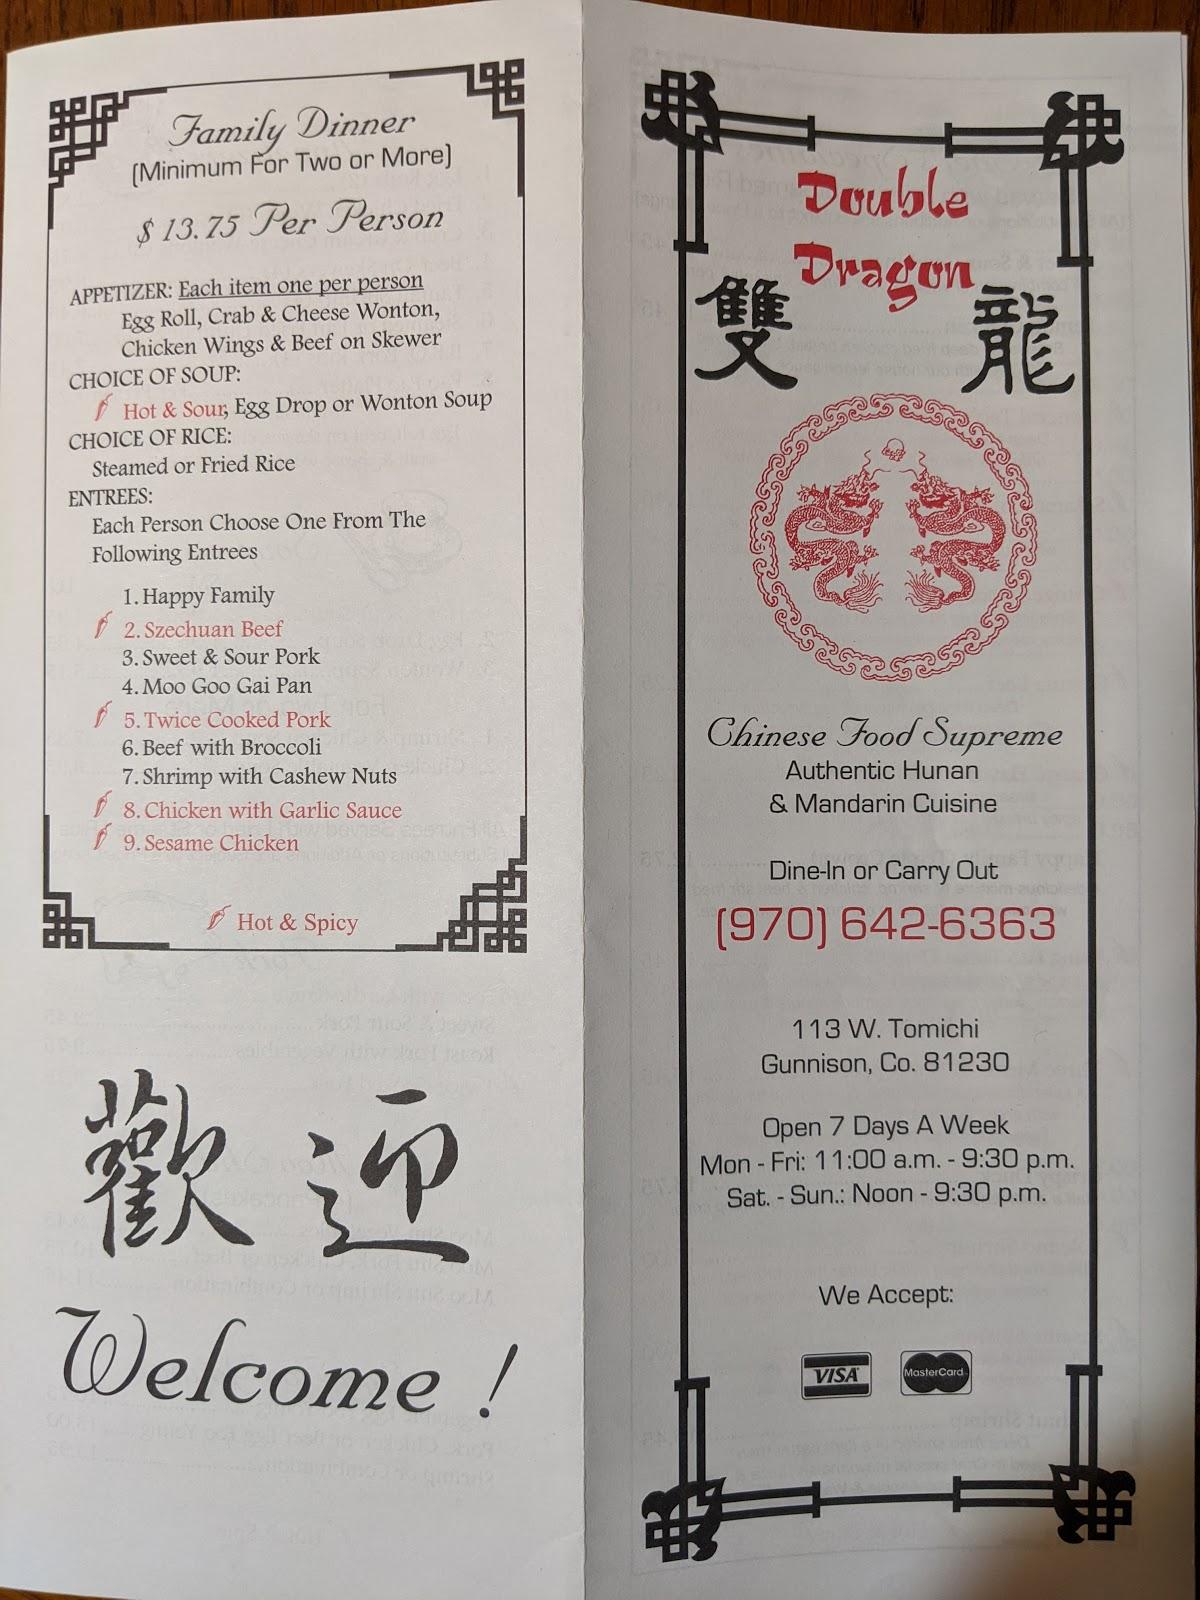 Family Dinner
(Minimum For Two or More)
$ 13.75 Per Person
APPETIZER: Each item one per person
Egg Roll, Crab & Cheese Wonton,
Chicken Wings & Beef on Skewer
CHOICE OF SOUP:
Hot & Sour, Egg Drop or Wonton Soup
CHOICE OF RICE:
Steamed or Fried Rice
ENTREES:
Each Person Choose One From The
Following Entrees
1. Happy Family
2. Szechuan Beef
3. Sweet & Sour Pork
4. Moo Goo Gai Pan
5. Twice Cooked Pork
6. Beef with Broccoli
7. Shrimp with Cashew Nuts
8. Chicken with Garlic Sauce
9. Sesame Chicken
Hot & Spicy
歡迎
Welcome !
Double
Dragon
雙龍
Chinese Food Supreme
Authentic Hunan
& Mandarin Cuisine
Dine-In or Carry Out
(970) 642-6363
113 W. Tomichi
Gunnison, Co. 81230
Open 7 Days A Week
Mon - Fri: 11:00 a.m. - 9:30 p.m.
Sat. - Sun.: Noon - 9:30 p.m.
We Accept:
VISA MasterCard